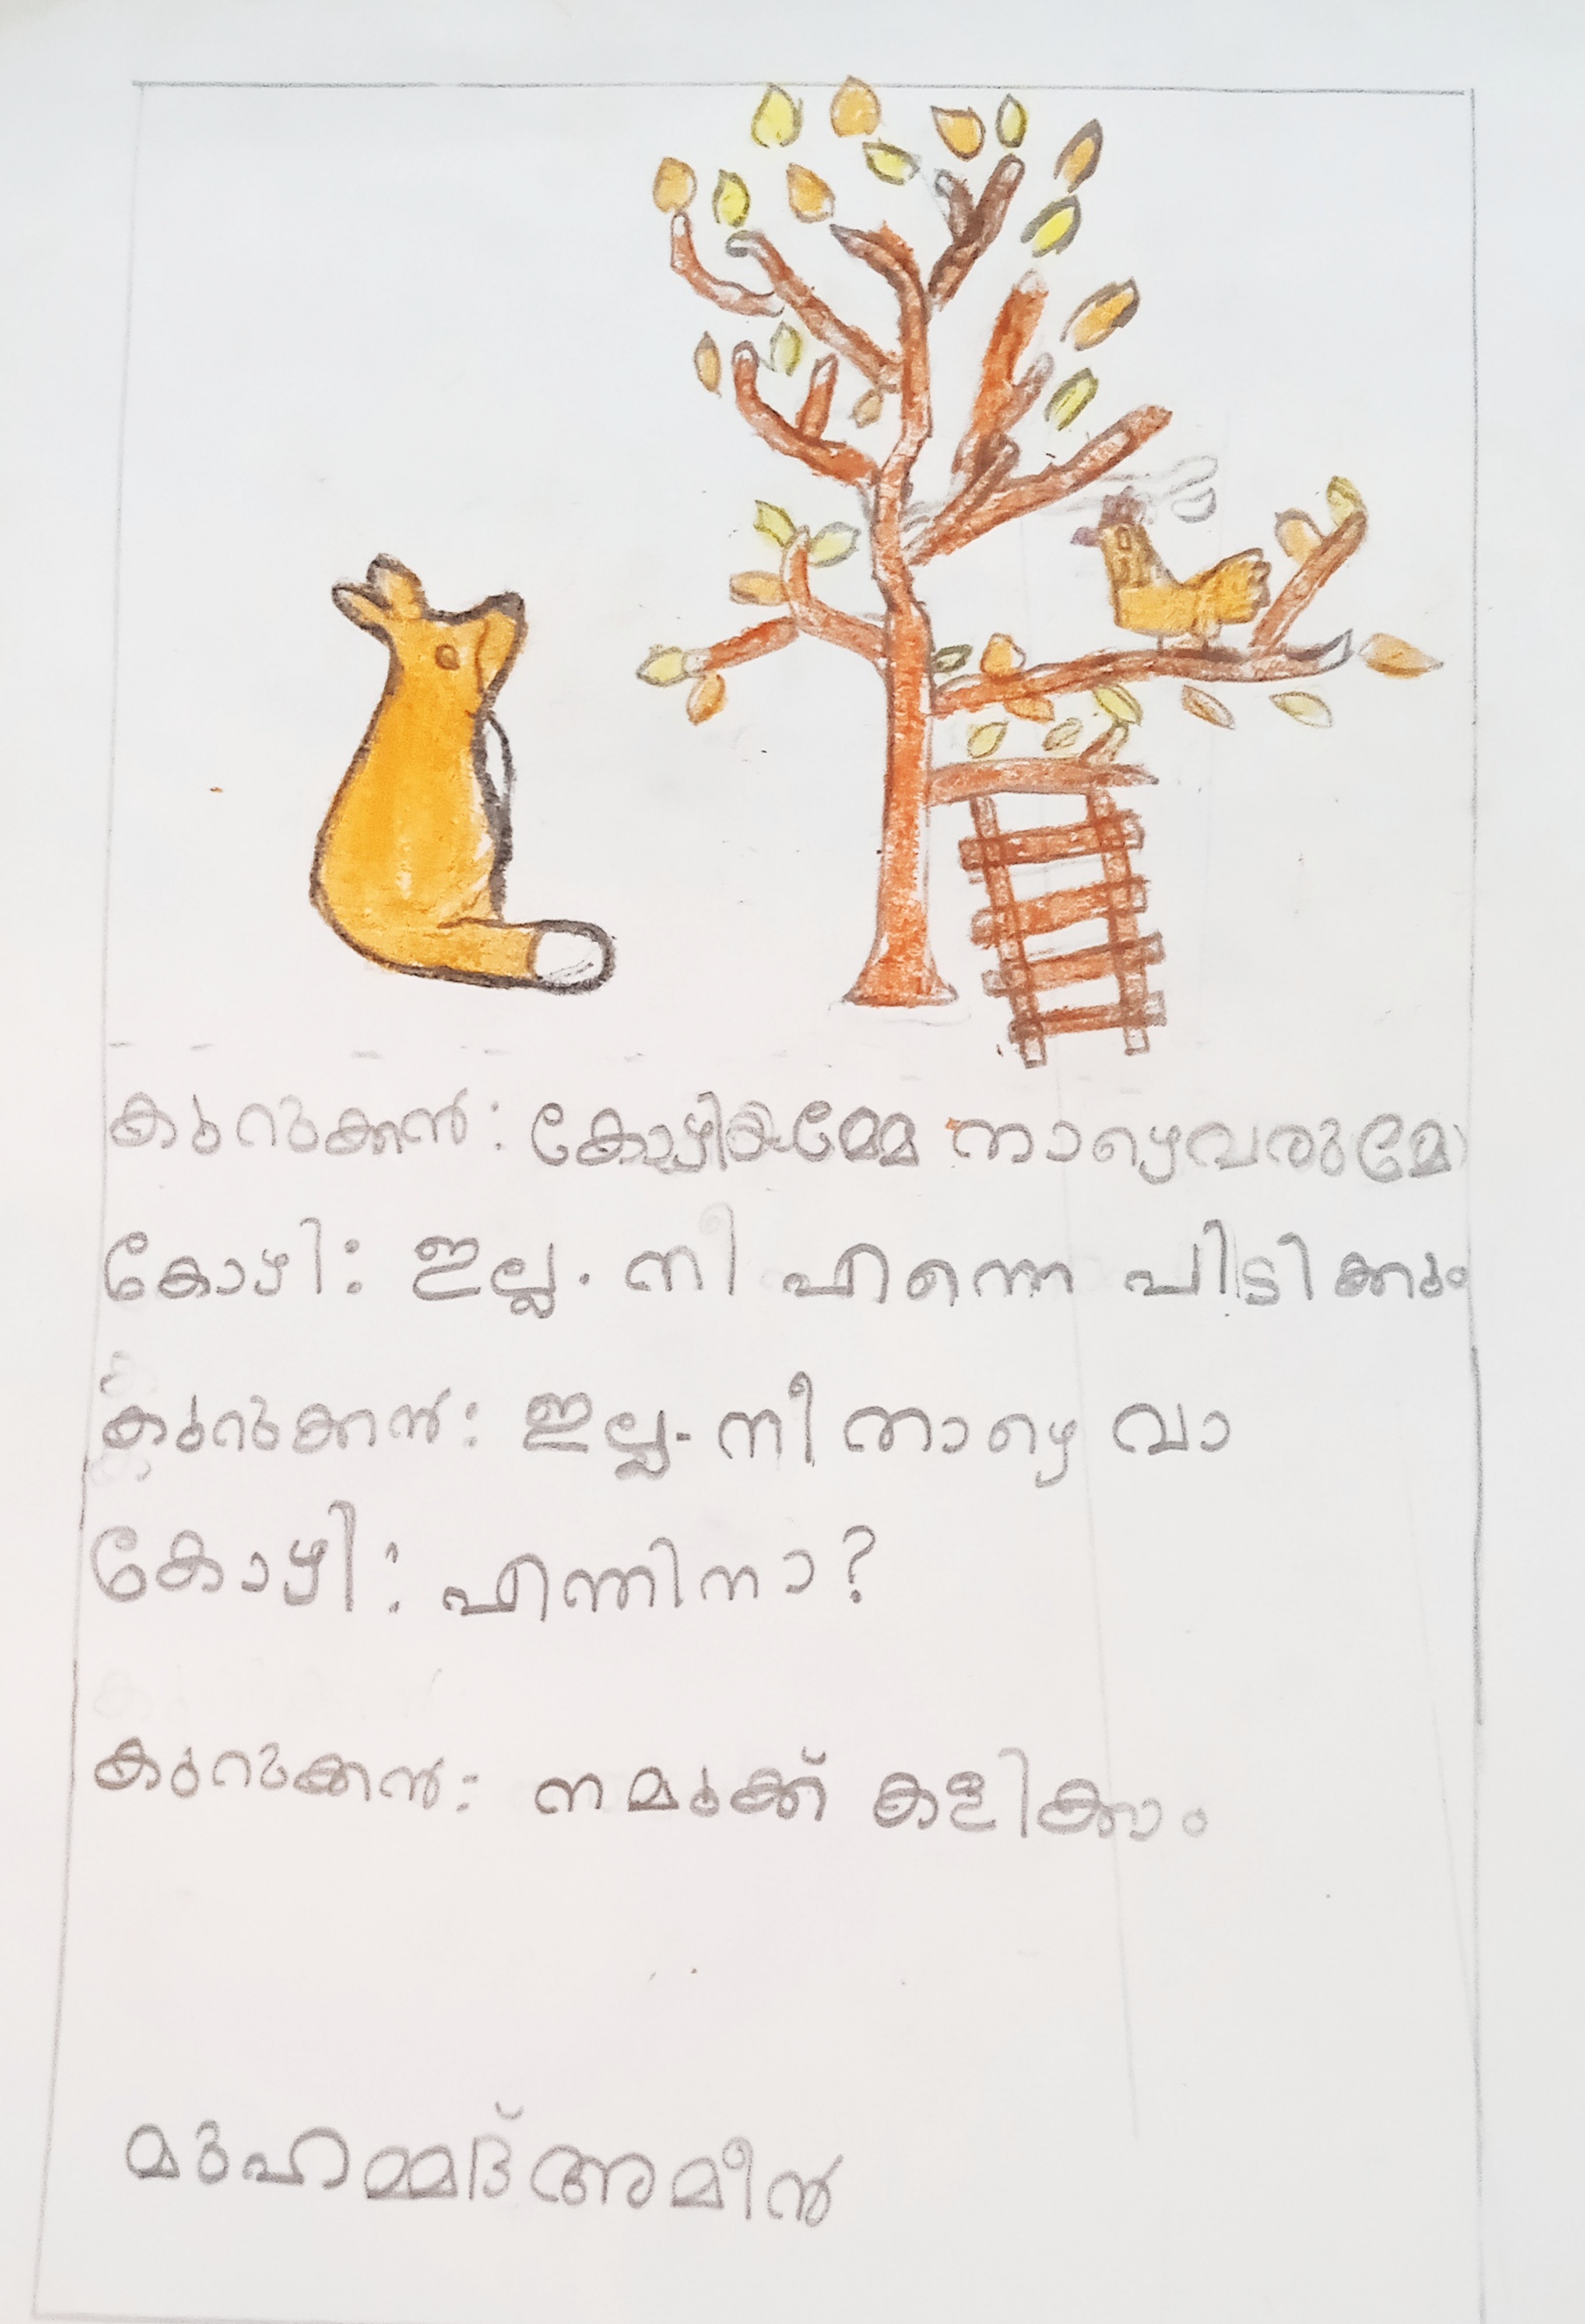 കുറുക്കൻ: കോഴിയമ്മേ താഴെവരുമോ
കോഴി: ഇല്ല. നീ എന്നെ പിടിക്കും
കുറുക്കൻ: ഇല്ല. നീ താഴെ വാ
കോഴി: എന്തിനാ?
കുറുക്കൻ: നമുക്ക് കളിക്കാം
മുഹമ്മദ് അമീൻ